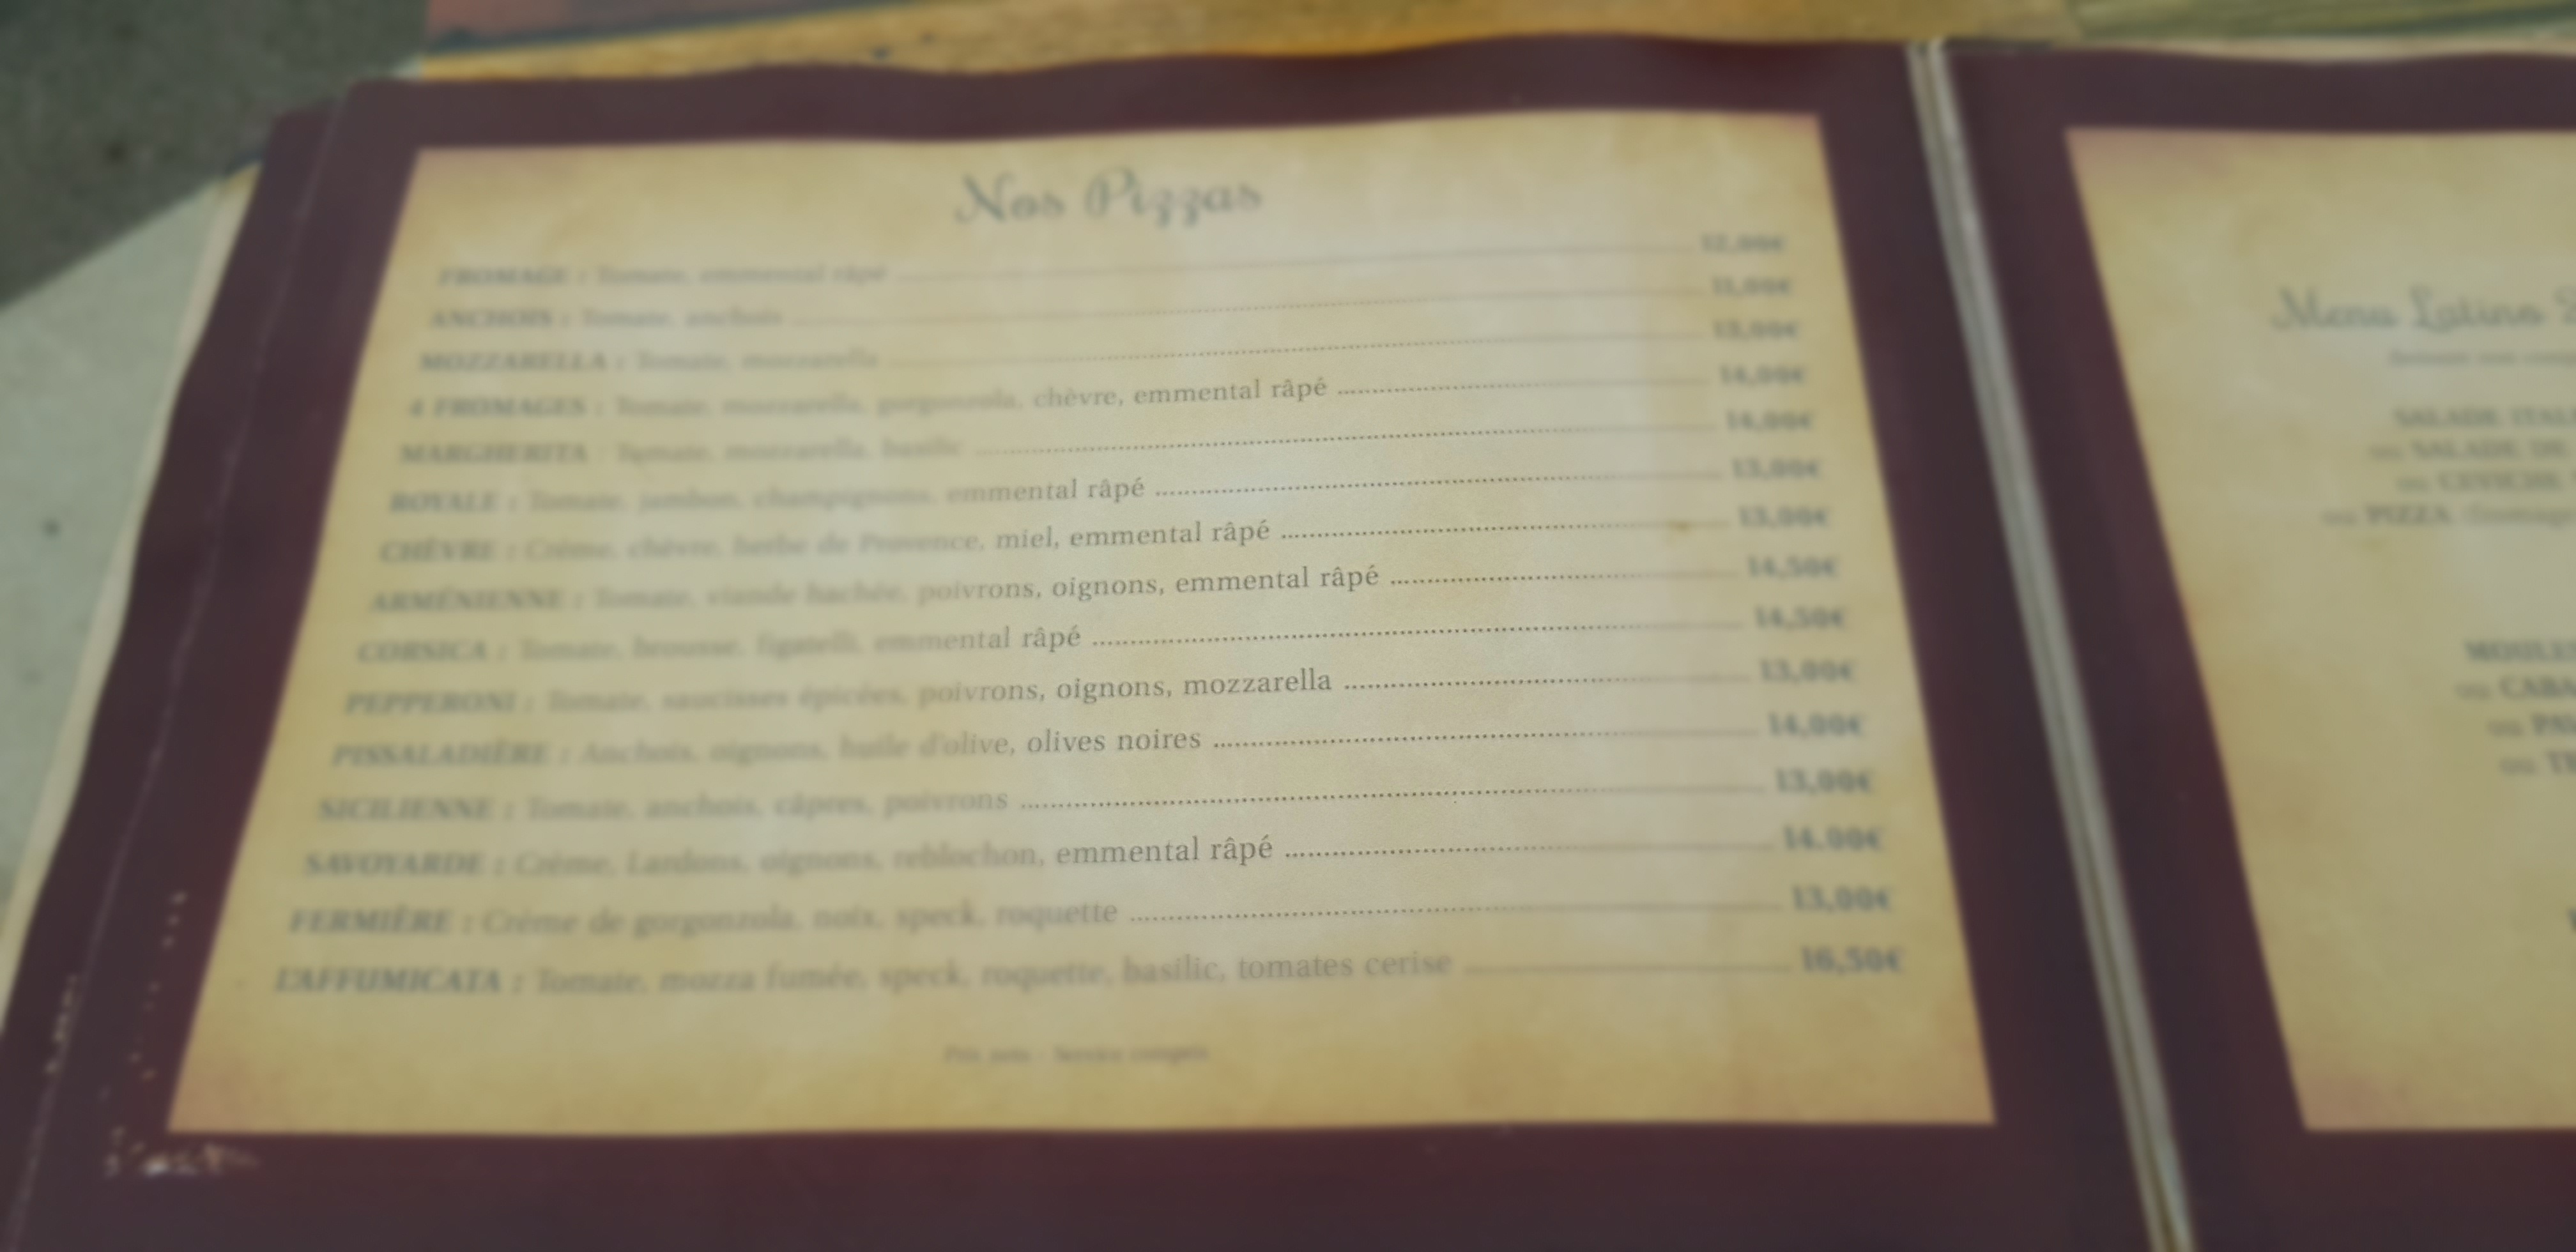 Nos Pizzas
FROMAGE : Tomate, emmental râpé 12,00€
ANCHOIS : Tomate, anchois 11,00€
MOZZARELLA : Tomate, mozzarella 13,00€
4 FROMAGES : Tomate, mozzarella, gorgonzola, chèvre, emmental râpé 14,00€
MARGHERITA : Tomate, mozzarella, basilic 14,00€
ROYALE : Tomate, jambon, champignons, emmental râpé 13,00€
CHÈVRE : Crème, chèvre, herbe de Provence, miel, emmental râpé 13,00€
ARMÉNIENNE : Tomate, viande hachée, poivrons, oignons, emmental râpé 14,50€
CORSICA : Tomate, brousse, figatelli, emmental râpé 14,50€
PEPPERONI : Tomate, saucisses épicées, poivrons, oignons, mozzarella 13,00€
PISSALADIÈRE : Anchois, oignons, huile d'olive, olives noires 14,00€
SICILIENNE : Tomate, anchois, câpres, poivrons 13,00€
SAVOYARDE : Crème, Lardons, oignons, reblochon, emmental râpé 14.00€
FERMIÈRE : Crème de gorgonzola, noix, speck, roquette 13,00€
L'AFFUMICATA : Tomate, mozza fumée, speck, roquette, basilic, tomates cerise 16,50€
Prix nets - Service compris
Menu Latino
SALADE
ou SALADE DE
ou CEVICHE
ou PIZZA
ou
ou
ou